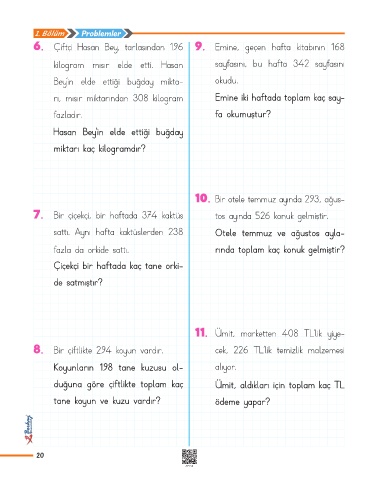 1. Bölüm Problemler
6. Çiftçi Hasan Bey, tarlasından 196
kilogram mısır elde etti. Hasan
Bey'in elde ettiği buğday mikta-
rı, mısır miktarından 308 kilogram
fazladır.
Hasan Bey'in elde ettiği buğday
miktarı kaç kilogramdır?
7. Bir çiçekçi, bir haftada 374 kaktüs
sattı. Aynı hafta kaktüslerden 238
fazla da orkide sattı.
Çiçekçi bir haftada kaç tane orki-
de satmıştır?
8. Bir çiftlikte 294 koyun vardır.
Koyunların 198 tane kuzusu ol-
duğuna göre çiftlikte toplam kaç
tane koyun ve kuzu vardır?
9. Emine, geçen hafta kitabının 168
sayfasını, bu hafta 342 sayfasını
okudu.
Emine iki haftada toplam kaç say-
fa okumuştur?
10. Bir otele temmuz ayında 293, ağus-
tos ayında 526 konuk gelmiştir.
Otele temmuz ve ağustos ayla-
rında toplam kaç konuk gelmiştir?
11. Ümit, marketten 408 TL'lik yiye-
cek, 226 TL'lik temizlik malzemesi
alıyor.
Ümit, aldıkları için toplam kaç TL
ödeme yapar?
20